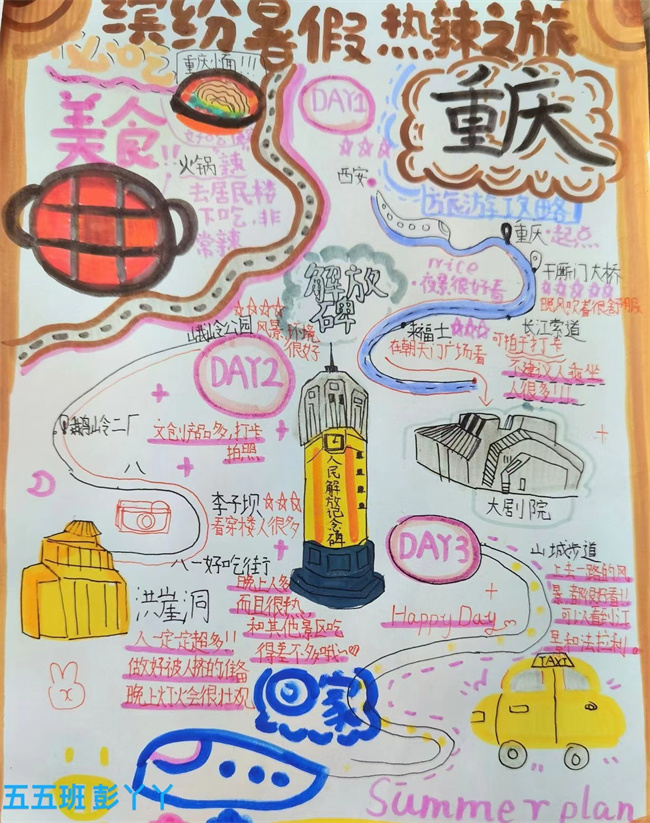 缤纷暑假 热辣之旅
必吃
美食!!
重庆小面!!!
火锅 辣
去居民楼
下吃,非
常辣
DAY1
☆☆☆
西安
重庆
旅游攻略
重庆·起点
千厮门大桥
☆☆☆☆☆
晚风吹着很舒服
nice
·夜景很好看
来福士☆☆☆
在朝天门广场看
长江索道
可拍于打卡
不建议人我坐
人很多!!!
大剧院
解放碑
人民解放纪念碑
DAY2
☆☆☆☆
风景,环境
很好
鹅岭二厂
文创产品多,打卡
拍照
李子坝☆☆☆
看穿楼人很多
八一好吃街
晚上人多
而且很热
和其他景区吃
得差不多哦~
洪崖洞
人一定定超多!!
做好被人挤的准备
晚上灯火会很壮观
DAY3
山城步道
上去一路的风
景都很好看!!
Happy Day
TAXI
回家
Summer plan
五五班彭丫丫